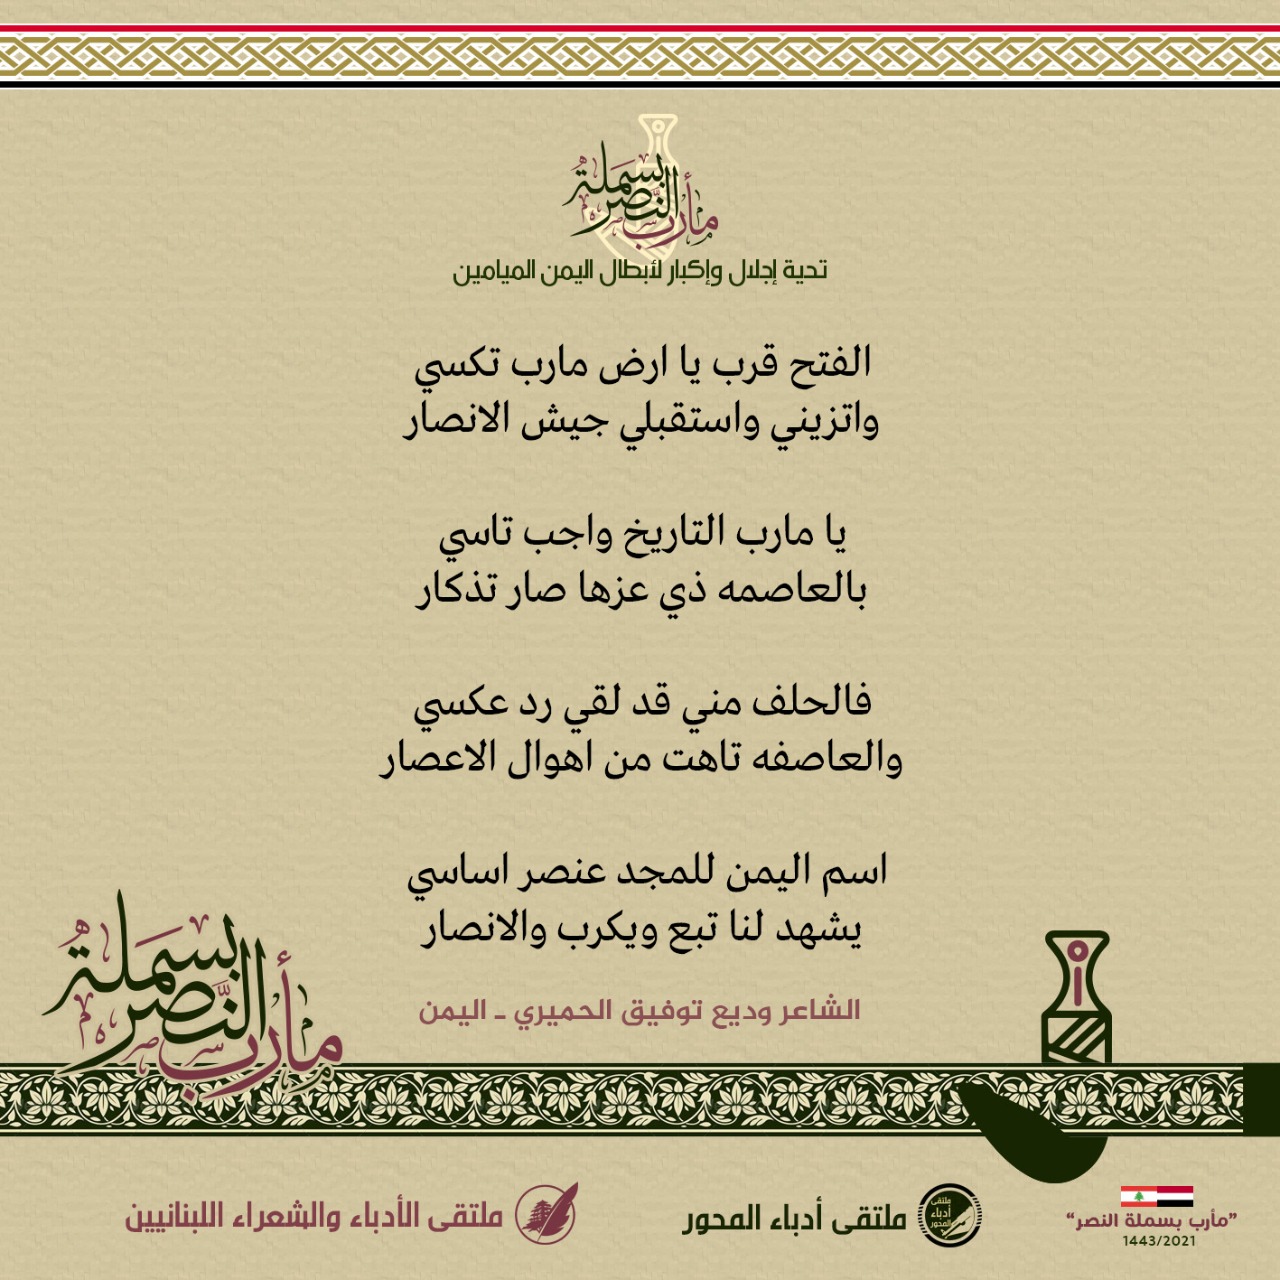 مأرب بسملة النصر
تحية إجلال وإكبار لأبطال اليمن الميامين
الفتح قرب يا ارض مارب تكسي
واتزيني واستقبلي جيش الانصار
يا مارب التاريخ واجب تاسي
بالعاصمه ذي عزها صار تذكار
فالحلف مني قد لقي رد عكسي
والعاصفه تاهت من اهوال الاعصار
اسم اليمن للمجد عنصر اساسي
يشهد لنا تبع ويكرب والانصار
الشاعر وديع توفيق الحميري ـ اليمن
مأرب بسملة النصر
”مأرب بسملة النصر“
1443/2021
ملتقى أدباء المحور
ملتقى أدباء المحور
ملتقى الأدباء والشعراء اللبنانيين